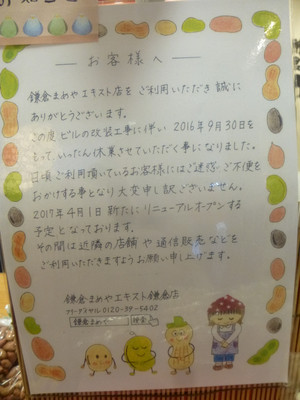 お客様へ
鎌倉まめやエキスト店をご利用いただき誠に
ありがとうございます。
この度ビルの改装工事に伴い2016年9月30日を
もって、いったん休業させていただく事になりました。
日頃ご利用頂いているお客様にはご迷惑・ご不便を
おかけする事となり大変申し訳ございません。
2017年4月1日新たにリニューアルオープンする
予定となっております。
その間は近隣の店舗や通信販売などを
ご利用いただきますようお願い申し上げます。
鎌倉まめやエキスト鎌倉店
フリーダイヤル0120-39-5402
鎌倉まめや 検索